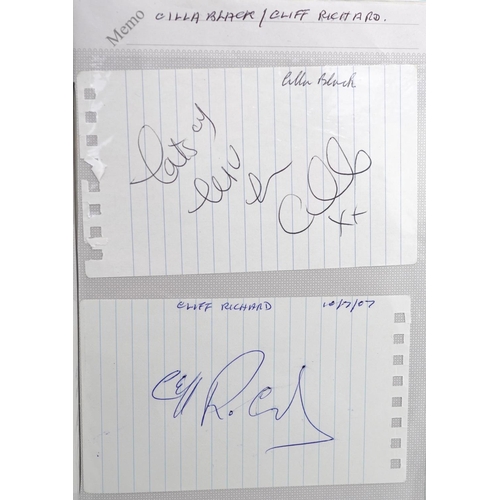 Memo
CILLA BLACK / CLIFF RICHARD.
Cilla Black
lots of
luv
Cilla
xx
CLIFF RICHARD 10/7/07
Cliff Richard